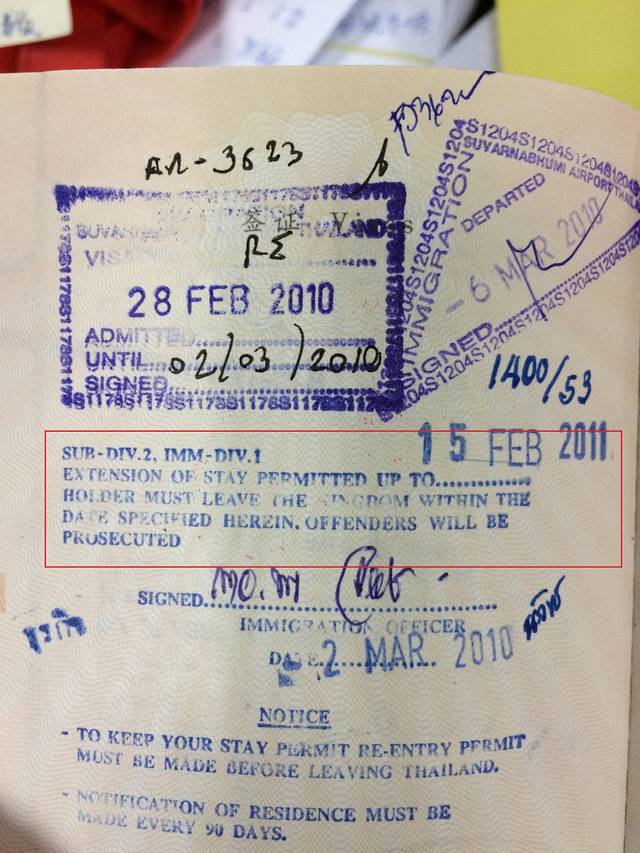 AR-3623
签证 Visas
THAILAND
VISA
RE
28 FEB 2010
ADMITTED
UNTIL 02/03/2010
SIGNED
S1178S1178S1178S1178S1178S11
S1204S1204S1204S1204S1204
SUVARNABHUMI AIRPORT THAILAND
DEPARTED
IMMIGRATION
- 6 MAR 2010
SIGNED
S1204S1204S1204S1204S1204S1204
1400/53
15 FEB 2011
SUB-DIV.2, IMM-DIV.1
EXTENSION OF STAY PERMITTED UP TO..............
HOLDER MUST LEAVE THE KINGDOM WITHIN THE
DATE SPECIFIED HEREIN. OFFENDERS WILL BE
PROSECUTED
SIGNED
IMMIGRATION OFFICER
ธุรกิจ
DATE 2 MAR 2010
NOTICE
- TO KEEP YOUR STAY PERMIT RE-ENTRY PERMIT
MUST BE MADE BEFORE LEAVING THAILAND.
- NOTIFICATION OF RESIDENCE MUST BE
MADE EVERY 90 DAYS.